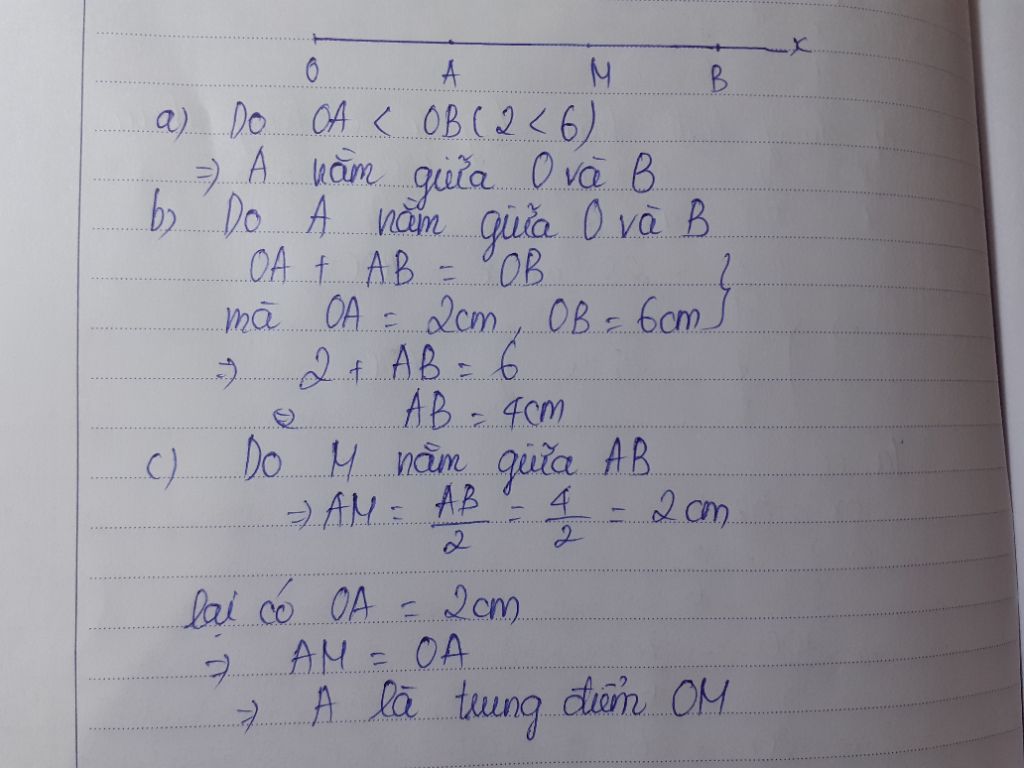 x
O A M B
a) Do OA < OB (2 < 6)
=> A nằm giữa O và B
b) Do A nằm giữa O và B
OA + AB = OB
mà OA = 2cm, OB = 6cm }
=> 2 + AB = 6
<=> AB = 4cm
c) Do M nằm giữa AB
=> AM = AB/2 = 4/2 = 2cm
lại có OA = 2cm
=> AM = OA
=> A là trung điểm OM